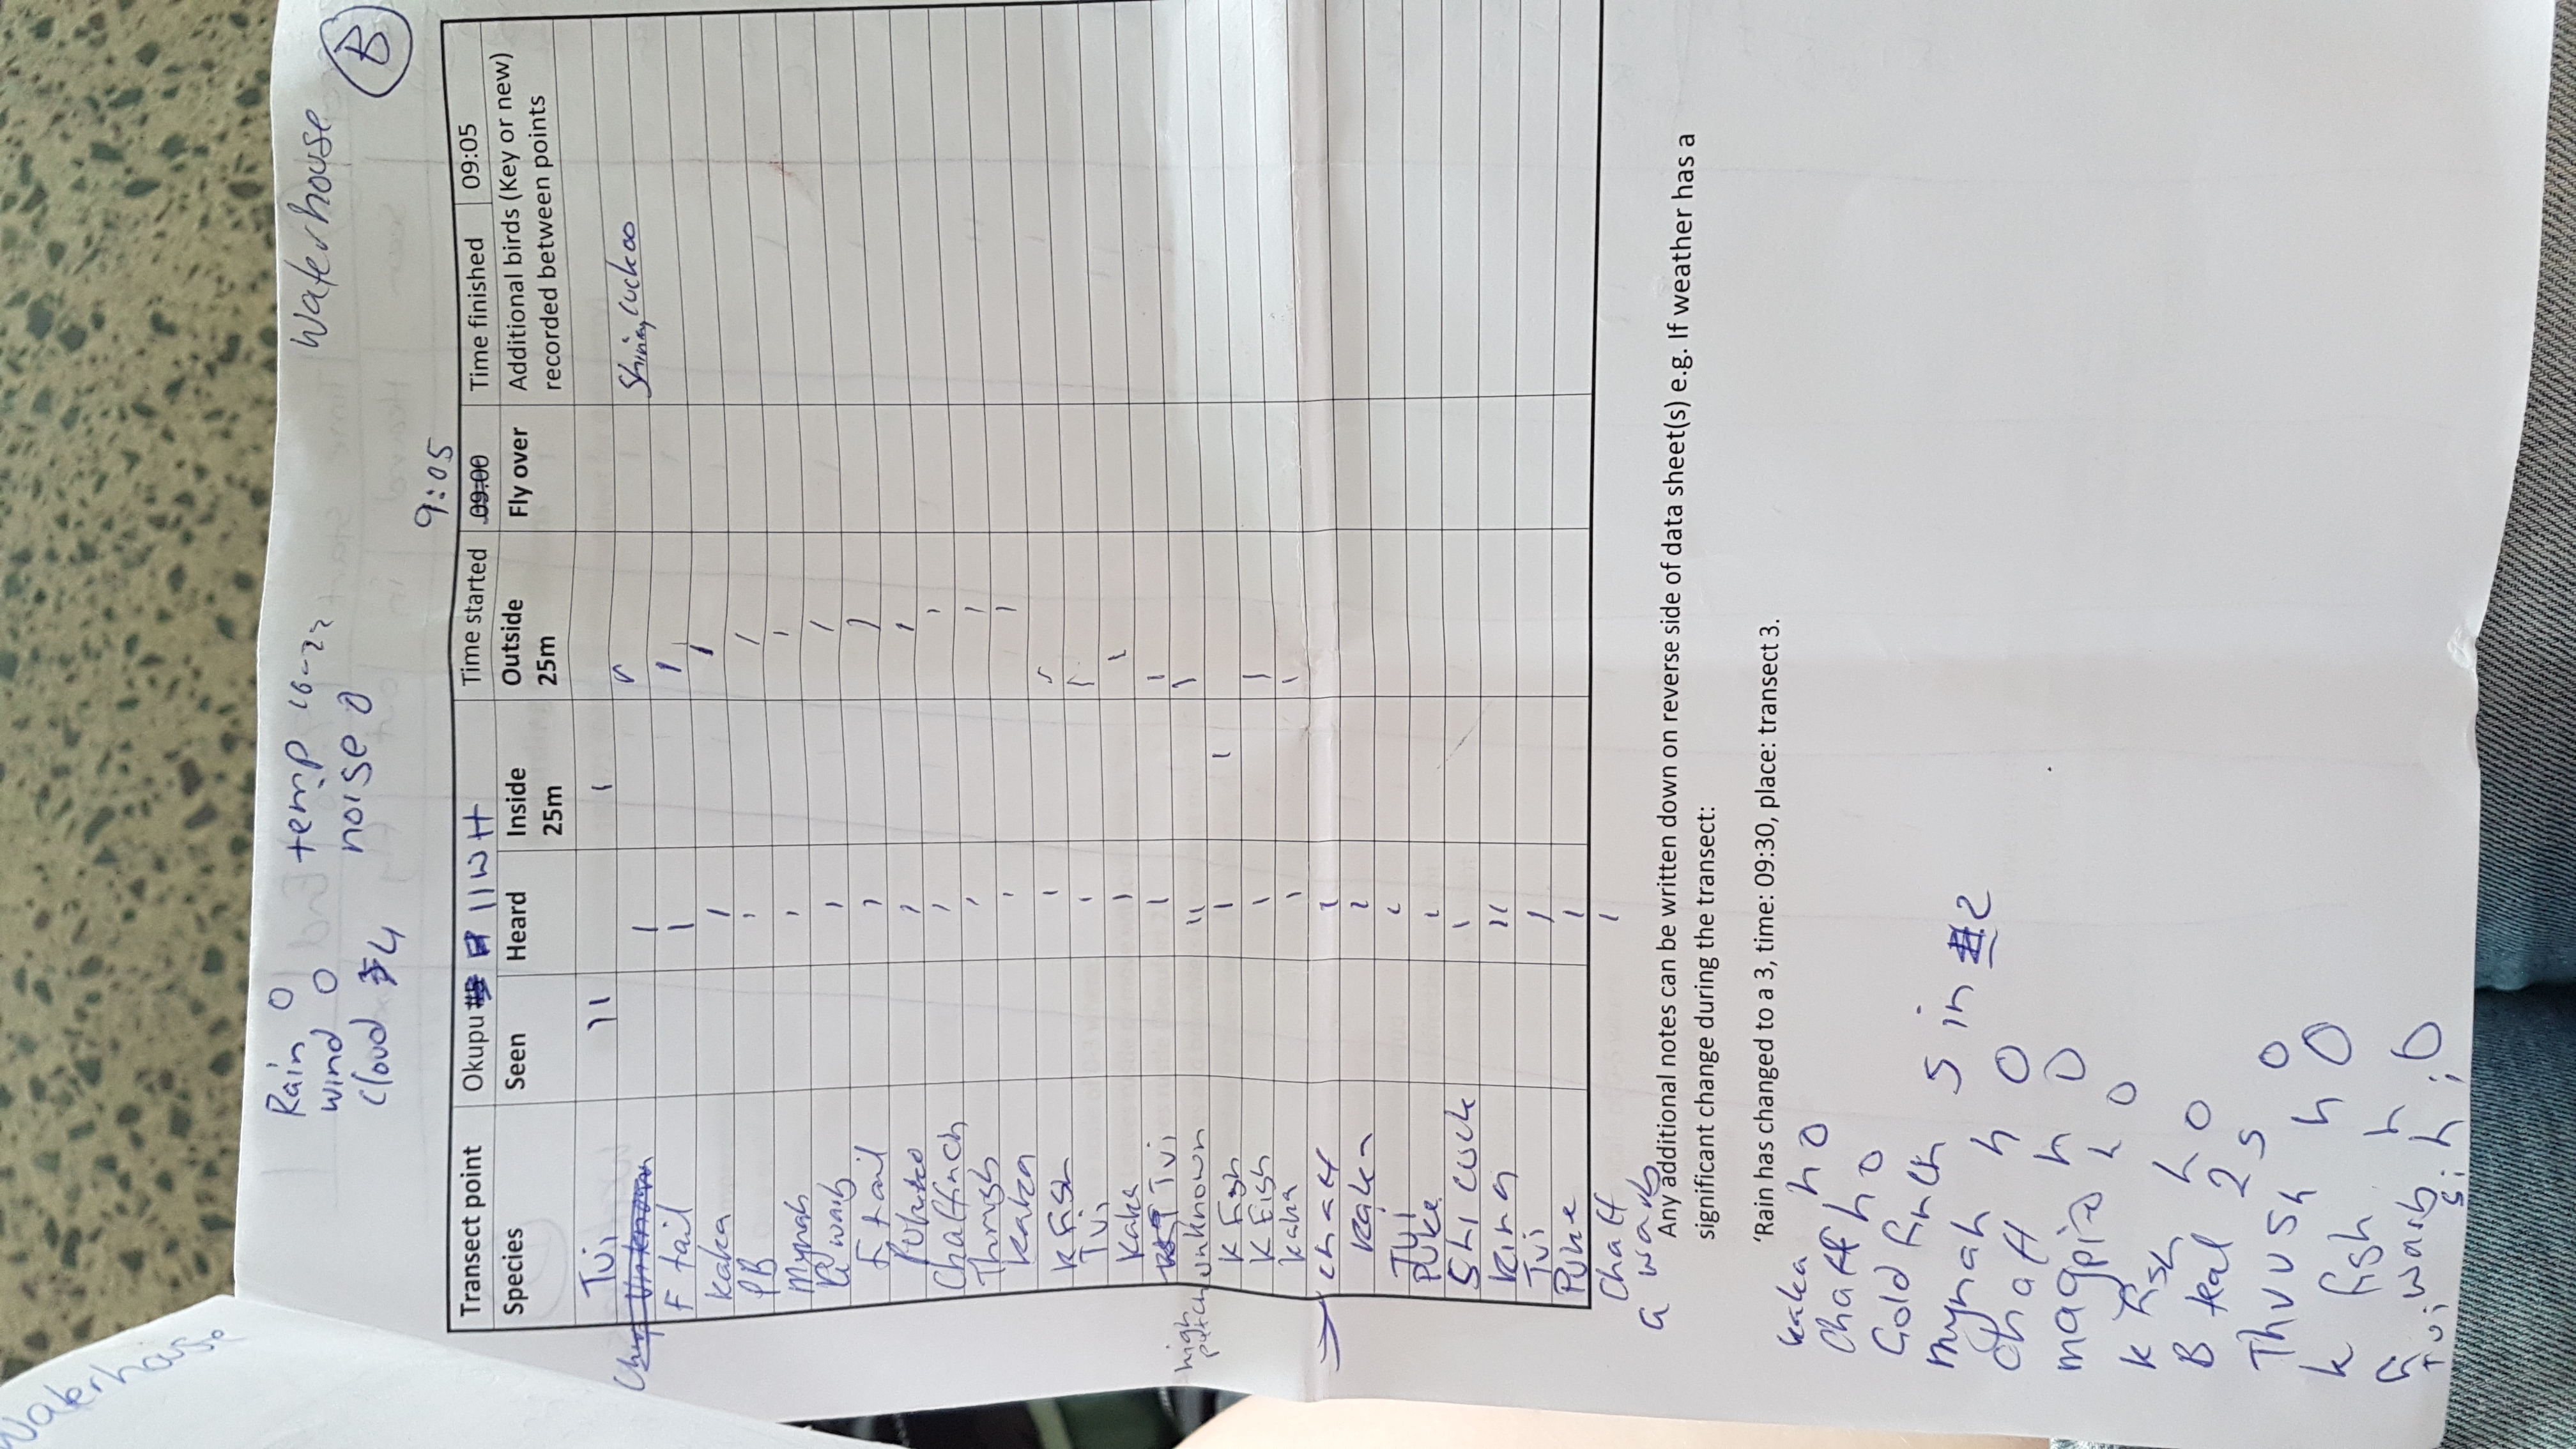 Waterhouse
Rain 0 temp 16-22 Waterhouse
wind 0 noise 0
cloud 4
B
9:05
Transect point Okupu 11 WH Time started 09:00 Time finished 09:05
Species Seen Heard Inside 25m Outside 25m Fly over Additional birds (Key or new) recorded between points
Tui 11 1
Shining Cuckoo
F tail 1 1
Kaka 1 1
PB 1 1
Mynah 1 1
G warb 1 1
F tail 1 1
Chaffinch 1 1
Thrush 1 1
Kaka 1 1
K Fish 1 1
Tui 1 1
Kaka 1 1
Tui 1 1
high pitch unknown 11 1
K Fish 1 1
K Fish 1 1
Kaka 1 1
Chaff 1
Kaka 1
Tui 1
Puke 1
Shi cuck 1
King 11
Tui 1
Puke 1
Chaff 1
G warb
Any additional notes can be written down on reverse side of data sheet(s) e.g. If weather has a
significant change during the transect:
'Rain has changed to a 3, time: 09:30, place: transect 3.
Kaka h 0
Chaff h 0
Gold finch
mynah 5 in 2
Chaff h 0
magpie h 0
K fish h 0
B teal 2 s
Thrush h 0
K fish h 0
G warb h 0
Tui s i h i